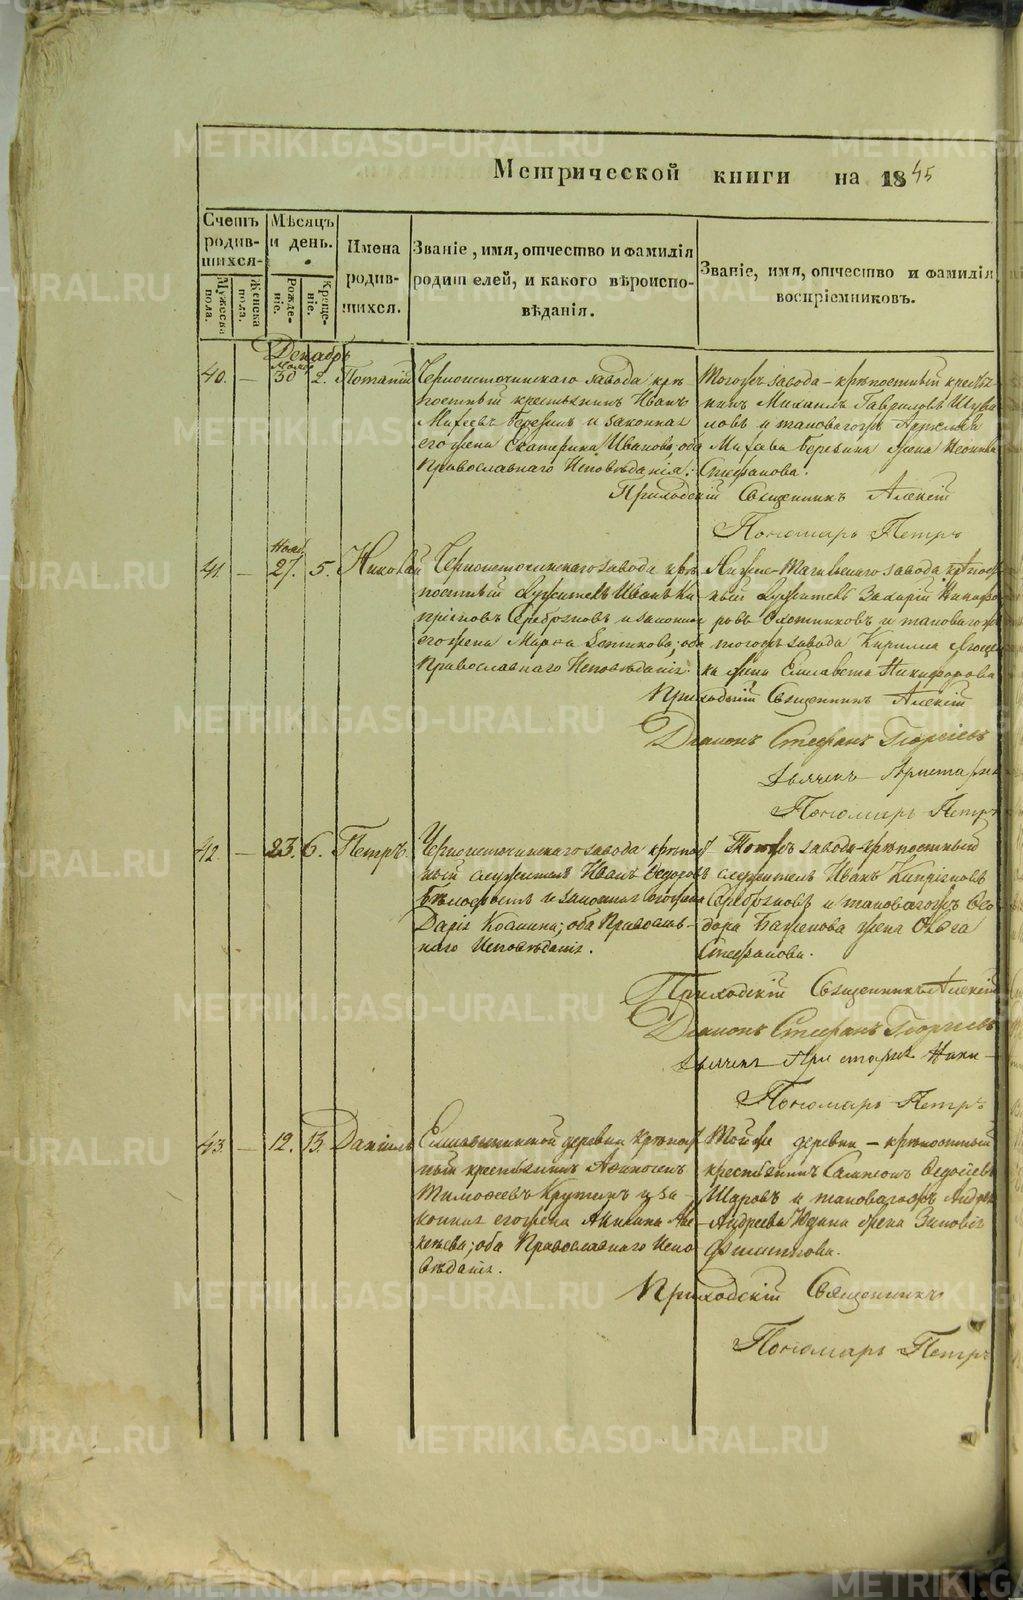 Метрической книги на 1845
Счетъ родив-шихся.
Мужеска пола.
Женска пола.
Мѣсяцъ и день.
Рожде-ніе.
Креще-ніе.
Имена родив-шихся.
Званіе, имя, отчество и фамилія
родителей, и какого вѣроиспо-
вѣданія.
Званіе, имя, отчество и фамилія
воспріемниковъ.
Декабрь
40. — Нояб. 30 2. Потапій
Черноисточинскаго завода крѣ-
постный крестьянинъ Иванъ
Михеевъ Березинъ и законная
его жена Екатерина Иванова, оба
Православнаго Исповѣданія.
Тогожъ завода – крѣпостный крестья-
нинъ Михаилъ Гавриловъ
ловъ и таковагожъ
Михѣева Березина жена
Стефанова.
Приходскій Священникъ Алексій
Пономарь Петръ
41. — Нояб. 27. 5. Николай
Черноисточинскаго завода крѣ-
постный служитель Иванъ Ки-
пріяновъ Серебряковъ и законная
его жена Марѳа Котикова; оба
Православнаго Исповѣданія.
Нижне-Тагильскаго завода крѣпост-
ный служитель Захарій Никифо-
ровъ Охотниковъ и таковагожъ
тогожъ завода Кирилла
жена Елисавета Никифорова
Приходскій Священникъ Алексій
Діаконъ Стефанъ Георгіевъ
Дьячекъ Аристархъ
Пономарь Петръ
42. — 23. 6. Петръ.
Черноисточинскаго завода крѣпост-
ный служитель Иванъ Ѳедоровъ
и законная его жена
Дарія Козмина; оба Православ-
наго Исповѣданія.
Тогожъ завода крѣпостный
служитель Иванъ Кипріяновъ
Серебряковъ и таковагожъ Ѳео-
дора Баженова жена Ольга
Стефанова.
Приходскій Священникъ Алексій
Діаконъ Стефанъ Георгіевъ
Дьячекъ Аристархъ Ники-
Пономарь Петръ
43. — 12. 13. Даніилъ
Елизаветинской деревни Крѣпост-
ный крестьянинъ Аѳиногенъ
Тимоѳеевъ Крутинъ и за-
конная его жена Акилина
оба Православнаго Испо-
вѣданія.
Той же деревни – крѣпостный
крестьянинъ Сампсонъ Ѳедосѣевъ
Шаровъ и таковагожъ Андрея
Андреева Юдина жена Зиновія
Филиппова.
Приходскій Священникъ
Пономарь Петръ
METRIKI.GASO-URAL.RU